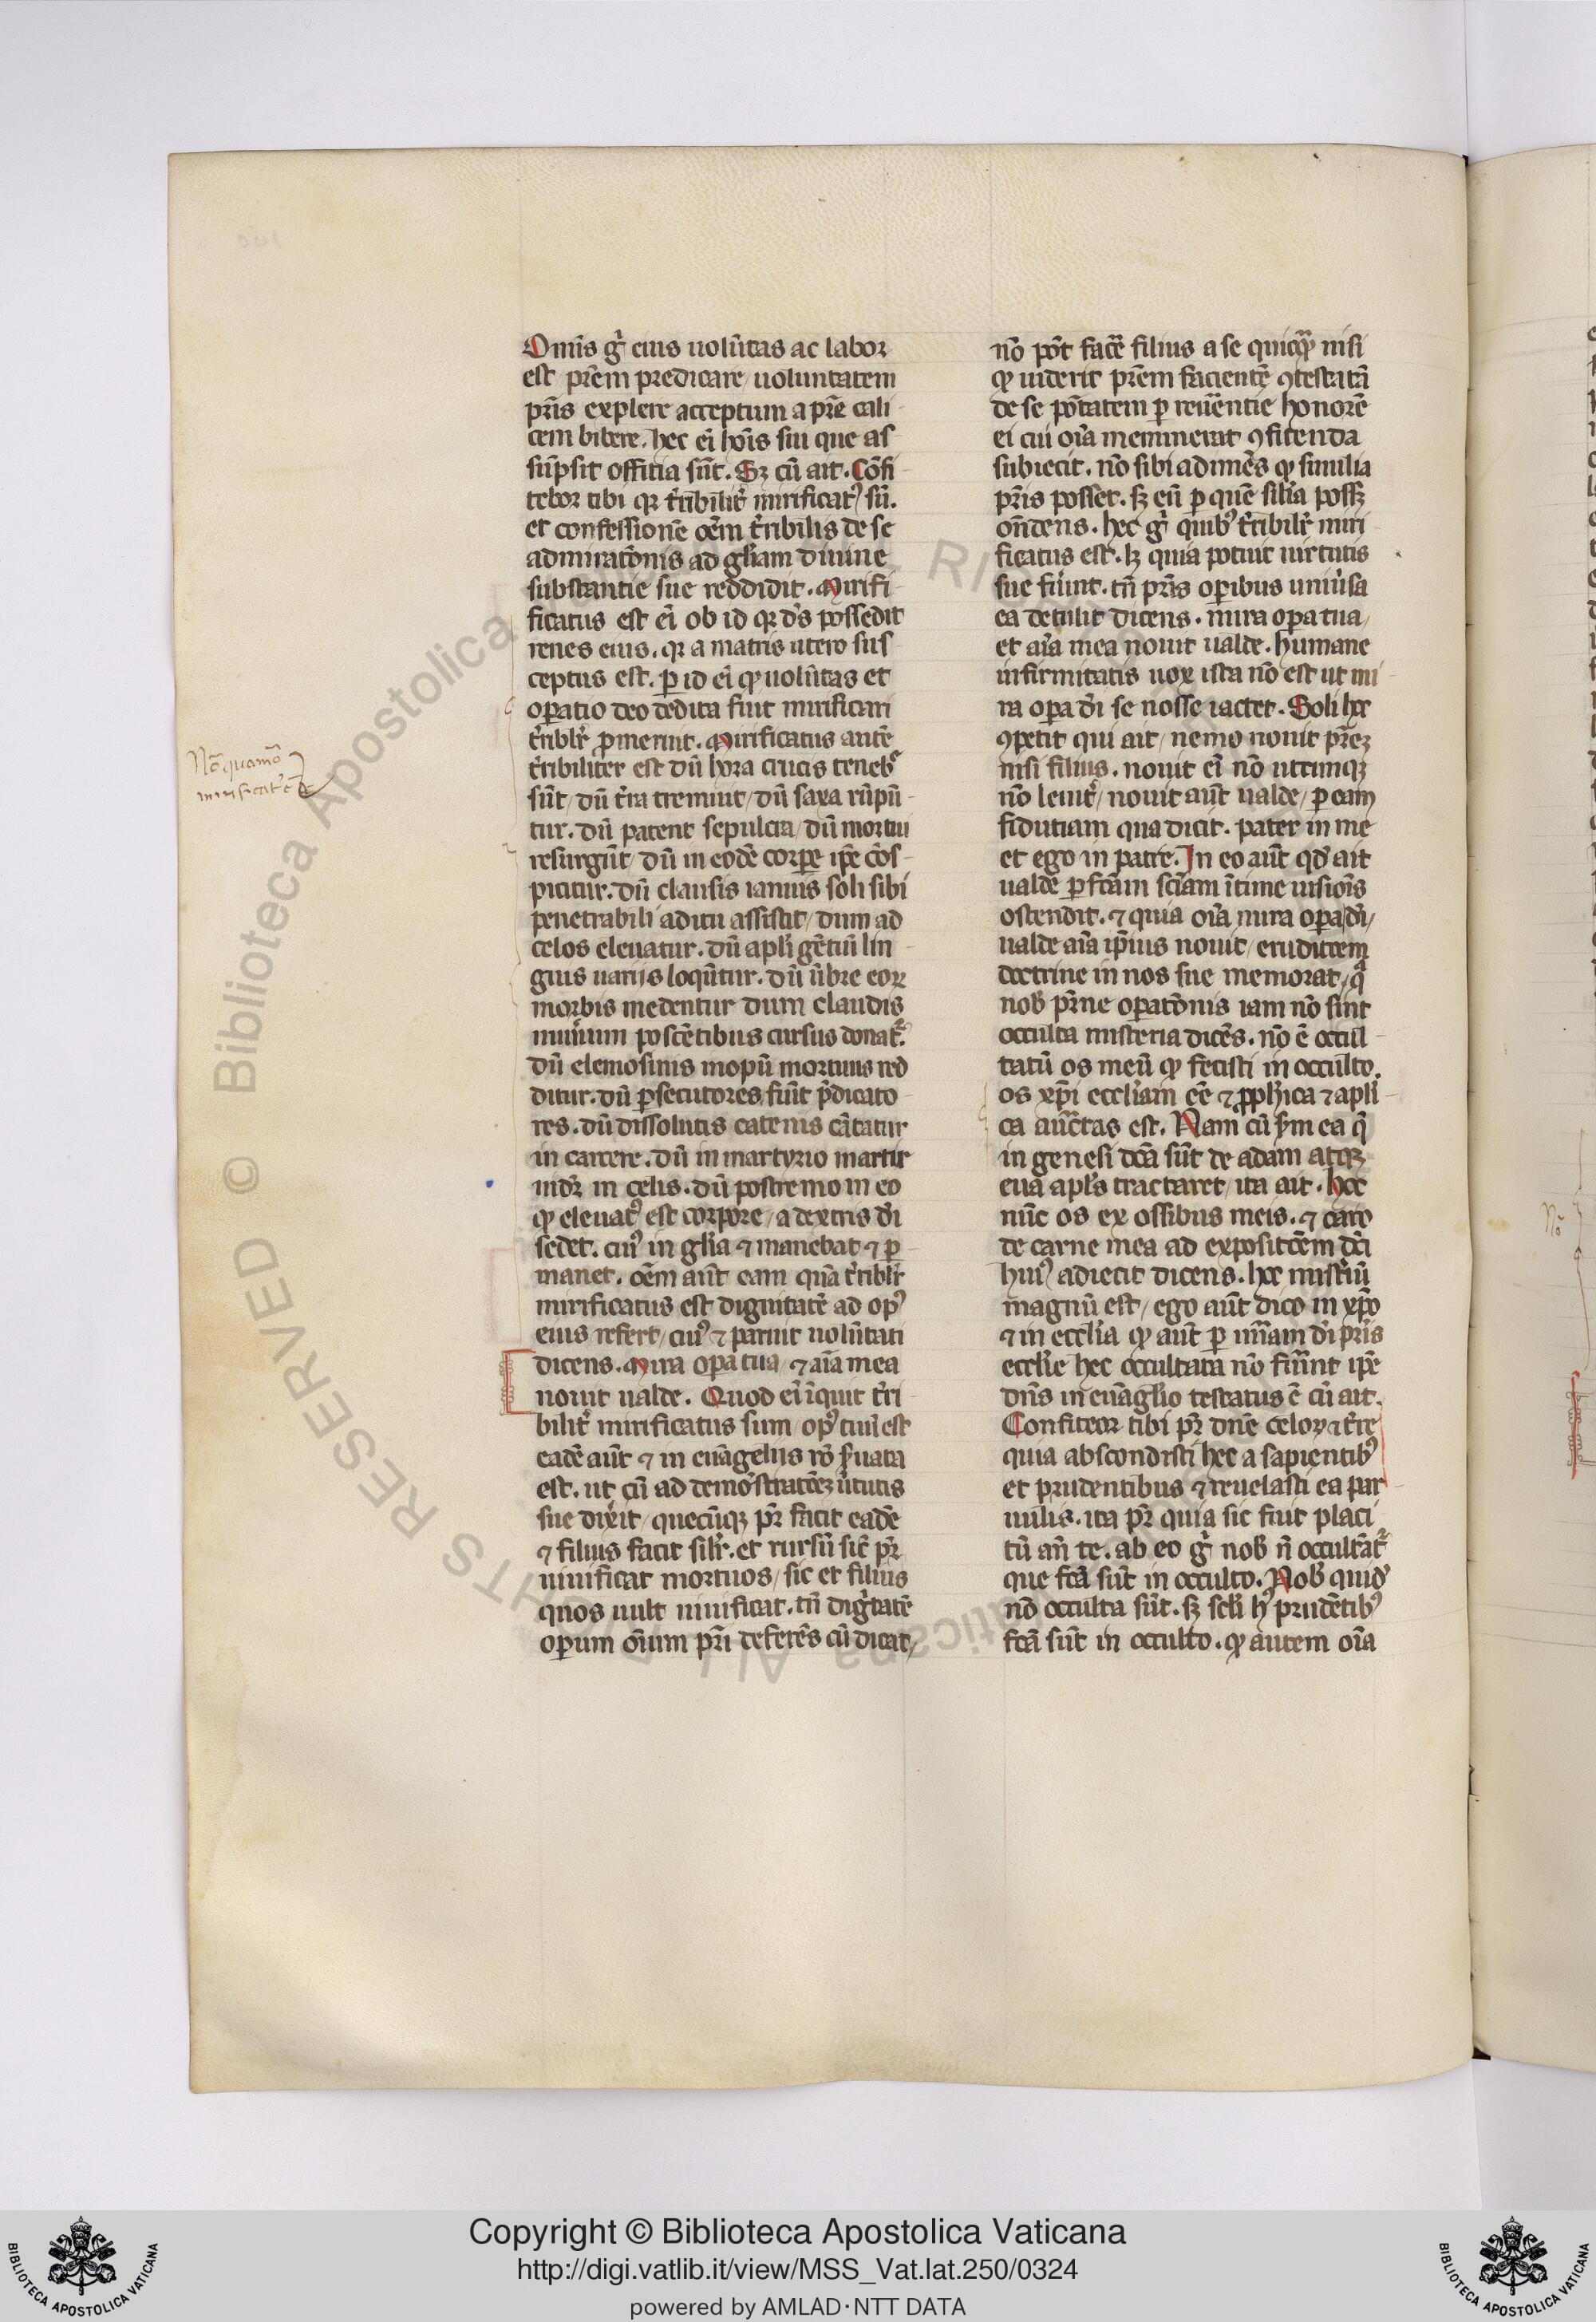 Nō quamō
mirificatꝰ ē xc
Omīs gͥ eius uolūtas ac labor
est prēm predicare / uoluntatem
pr̄is explere acceptum a prē cali
cem bibere. hec eī hōis sui que as
sūpsit offitia sūt. Sꝫ cū ait. Cōfi
tebor tibi qꝛ t̓ribilit̓ mirificatꝰ sū.
et confessionē oēm t̓ribilis de se
admiratōnis ad gl̓iam diuine
substantie sue reddidit. Mirifi
ficatus est eī ob id qꝛ dꝰs possedit
renes eius. qꝛ a matris utero sus
ceptus est. ꝑ id eī ꝙ uolūtas et
oꝑatio deo dedita fuit mirificari
t̓ribl̓r ꝓmeruit. Mirificatus autē
t̓ribiliter est dū hora crucis tenebͬ
sūt / dū t̓ra tremuit / dū saxa rūpū
tur. dū patent sepulcra / dū mortui
resurgūt / dū in eodē corꝑe ip̄e cōs
picitur. dū clausis ianuis soli sibi
penetrabili aditu assistit / dum ad
celos eleuatur. dū apl̓i gētiū lin
guis uarijs loqūtur. dū ūbre eoꝝ
morbis medentur dum claudis
munium poscētibus cursus donatͬ.
dū elemosinis inopū mortuus red
ditur. dū ꝑsecutores fiūt p̄dicato
res. dū dissolutis catenis cātatur
in carcere. dū in martyrio martir
uidꝫ in celis. dū postremo in eo
ꝙ eleuatꝰ est corpore / a dextris d̓i
sedet. cuiꝰ in gl̓ia ⁊ manebat ⁊ ꝑ
manet. oēm aūt eam quā t̓ribl̓r
mirificatus est dignitatē ad opꝰ
eius refert / cuiꝰ ⁊ paruit uolūtati
dicens. Mira oꝑa tua / ⁊ aīa mea
nouit ualde. Quod eī īquit t̓ri
bilit̓ mirificatus sum / opꝰ tuū est
eadē aūt ⁊ in euāgelijs rō s̓uata
est. ut cū ad demōstratōeꝫ ūtutis
sue dixit / quecūqꝫ pr̄ facit eadē
⁊ filius facit sil̓r. et rursū sic̄ pr̄
uiuificat mortuos / sic et filius
quos uult uiuificat. tn̄ dig̓tatē
oꝑum ōium pr̄i deferēs cū dicat /
nō pōt facē filius a se quicqͣꝫ nisi
ꝙ uiderit prēm facientē ꝯtestatā
de se pōtatem ꝑ reu̓entie honorē
ei cui oīa meminerat ꝯfitenda
subiecit. nō sibi adimēs ꝙ similia
pr̄is posset. sꝫ eū ꝑ quē sil̓ia possꝫ
on̄dens. hec gͥ quibꝰ t̓ribil̓r miri
ficatus est. lꝫ quia potuit uirtutis
sue fūint. tn̄ pr̄is oꝑibus uniu̓sa
ea detulit dicens. mira oꝑa tua /
et aīa mea nouit ualde. humane
infirmitatis uox ista nō est ut mi
ra oꝑa d̓i se nosse iactet. Soli hec
ꝯpetit qui ait / nemo nouit prēꝫ
nisi filius. nouit eī nō utcunqꝫ
nō leuit̓ / nouit aūt ualde / ꝑ eam
fidutiam qua dicit. pater in me
et ego in patre. In eo aūt qd̓ ait
ualde ꝑfcām scīam ītime uisiōis
ostendit. ⁊ quia oīa mira oꝑa d̓i /
ualde aīa ip̄ius nouit / eruditōem
doctrine in nos sue memorat / qͣ
nob̓ pr̄ne oꝑatōnis iam nō sint
occulta misteria dicēs. nō ē occul
tatū os meū ꝙ fecisti in occulto.
os xp̄i eccl̓iam eē ⁊ ꝓph̓ica ⁊ apl̓i
ca auc̄tas est. Nam cū s̓m ea q̄
in genesi dc̄a sūt de adam atqꝫ
eua apl̓s tractaret / ita ait. hoc
nūc os ex ossibus meis. ⁊ caro
de carne mea ad expositōem dc̄i
huiꝰ adiecit dicens. hoc mist̓iū
magnū est / ego aūt dico in xp̄o
⁊ in eccl̓ia ꝙ aūt ꝑ iniͣam d̓i pr̄is
eccl̓ie hec occultata nō fūunt ip̄e
dn̄s in euāgl̓io testatus ē cū ait.
Confiteor tibi pr̄ dn̄e celoꝝ ⁊ t̓re
quia abscondisti hec a sapientibꝰ
et prudentibus ⁊ reuelasti ea par
uulis. ita pr̄ quia sic fuit placi
tū an̄ te. ab eo gͥ nob̓ n̄ occultātͬ
que fcā sūt in occulto. Nob̓ quid̓
nō occulta sūt. sꝫ scl̓i hꝰ prudētibꝰ
fcā sūt in occulto. ꝙ autem oīa
Copyright © Biblioteca Apostolica Vaticana
http://digi.vatlib.it/view/MSS_Vat.lat.250/0324
powered by AMLAD·NTT DATA
BIBLIOTECA APOSTOLICA VATICANA
BIBLIOTECA APOSTOLICA VATICANA